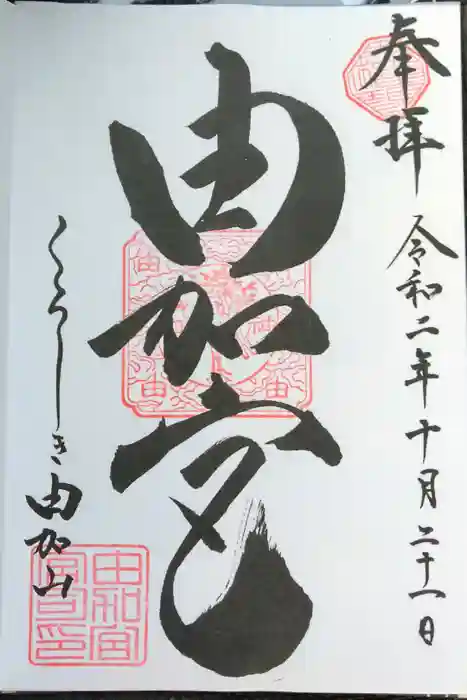 奉拝
令和二年十月二十一日
由加宮
くらしき由加山